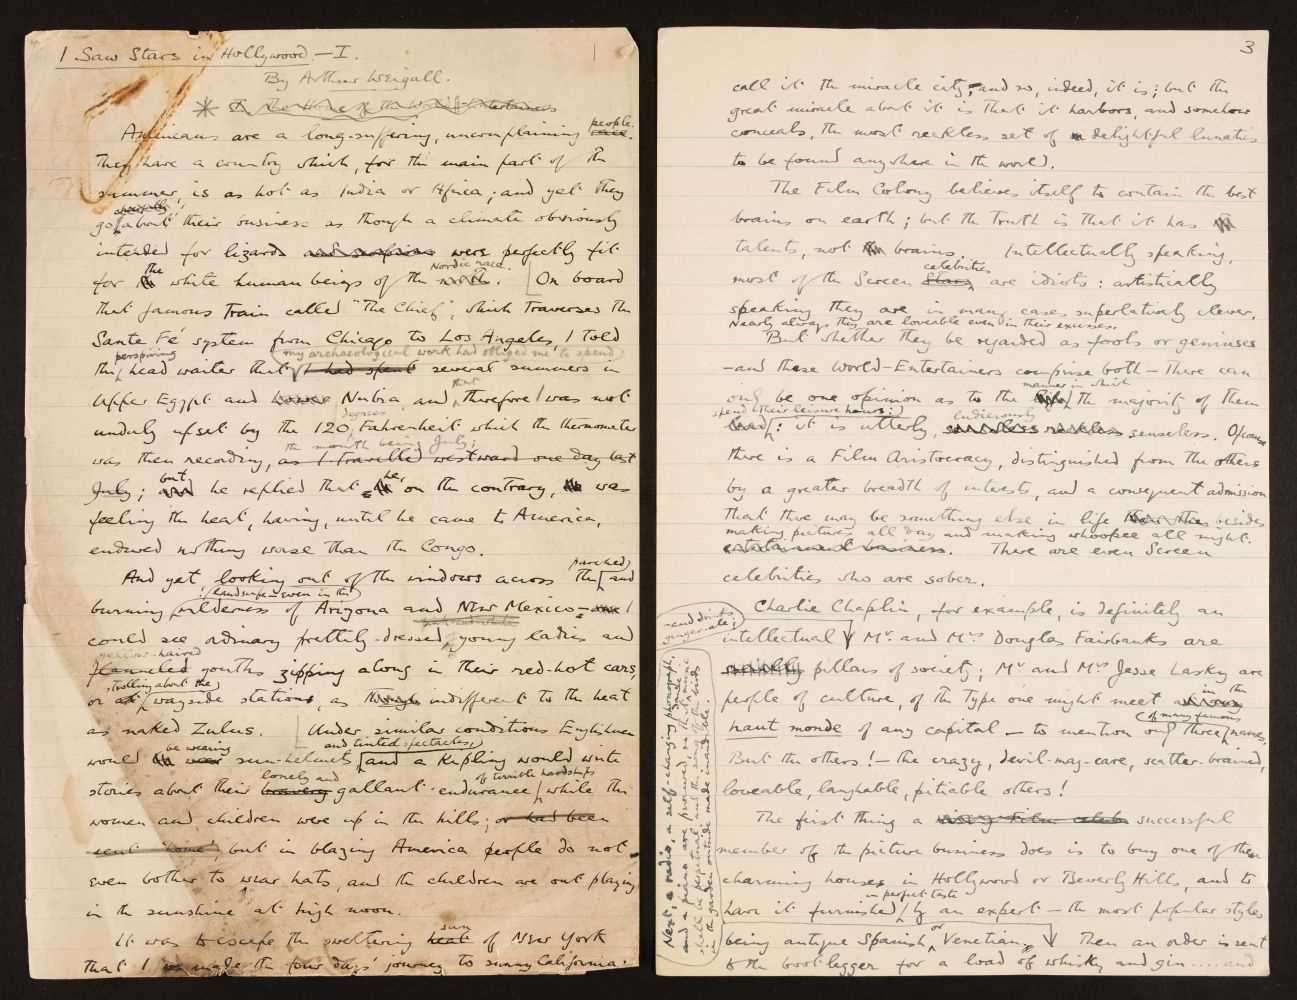 I Saw Stars in Hollywood.—I.
1
By Arthur Weigall.
Americans are a long-suffering, uncomplaining people.
They have a country which, for the main part of the
summer, is as hot as India or Africa; and yet they
go about their business as though a climate obviously
intended for lizards were perfectly fit
for the white human beings of the Nordic race. On board
that famous train called "The Chief", which traverses the
Santa Fé system from Chicago to Los Angeles, I told
the perspiring head waiter that my archaeological work had obliged me to spend
several summers in
Upper Egypt and Nubia, and that therefore I was not
unduly upset by the 120 degrees Fahrenheit which the thermometer
was then recording, the month being July;
as I travelled westward one day last
July; but he replied that he, on the contrary, was
feeling the heat, having, until he came to America,
endured nothing worse than the Congo.
And yet, looking out of the windows across the parched and
burning wilderness of Arizona and New Mexico— landscape—even in the I
could see ordinary prettily-dressed young ladies and
yellow-haired
flannelled youths zipping along in their red-hot cars,
or strolling about the wayside stations, as indifferent to the heat
as naked Zulus. Under similar conditions Englishmen
would be wearing sun-helmets and tinted spectacles, and a Kipling would write
stories about their lonely and gallant endurance of terrible hardships while the
women and children were up in the hills; or had been
sent home; but in blazing America people do not
even bother to wear hats, and the children are out playing
in the sunshine at high noon.
It was to escape the sweltering heat of New York
that I made the four days' journey to sunny California.
3
call it the miracle city,—and so, indeed, it is; but the
great miracle about it is that it harbors, and somehow
conceals, the most reckless set of delightful lunatics
to be found anywhere in the world.
The Film Colony believes itself to contain the best
brains on earth; but the truth is that it has
talents, not brains. Intellectually speaking,
most of the Screen celebrities are idiots: artistically
speaking they are in many cases superlatively clever.
Nearly always they are loveable even in their excesses.
But whether they be regarded as fools or geniuses
—and these World-Entertainers comprise both—there can
only be one opinion as to the manner in which the majority of them
spend their leisure hours:
lead: it is utterly, ludicrously senseless. Of course
there is a Film Aristocracy, distinguished from the others
by a greater breadth of interests, and a consequent admission
that there may be something else in life besides
making pictures all day and making whoopee all night.
There are even Screen
celebrities who are sober.
Charlie Chaplin, for example, is definitely an
intellectual and drinks ginger-ale; Mr. and Mrs Douglas Fairbanks are
pillars of society; Mr and Mrs Jesse Lasky are
people of culture, of the type one might meet in the
haut monde of any capital—to mention only three of many famous names.
But the others!—the crazy, devil-may-care, scatter-brained,
loveable, laughable, pitiable others!
The first thing a successful
member of the picture business does is to buy one of these
charming houses in Hollywood or Beverly Hills, and to
have it furnished in perfect taste by an expert—the most popular styles
being antique Spanish or Venetian. Then an order is sent
to the bootlegger for a load of whisky and gin.....and
Next, a radio, a self-changing phonograph,
and a piano are procured, so that music
shall be perpetual and the song of the birds
in the garden outside made inaudible.